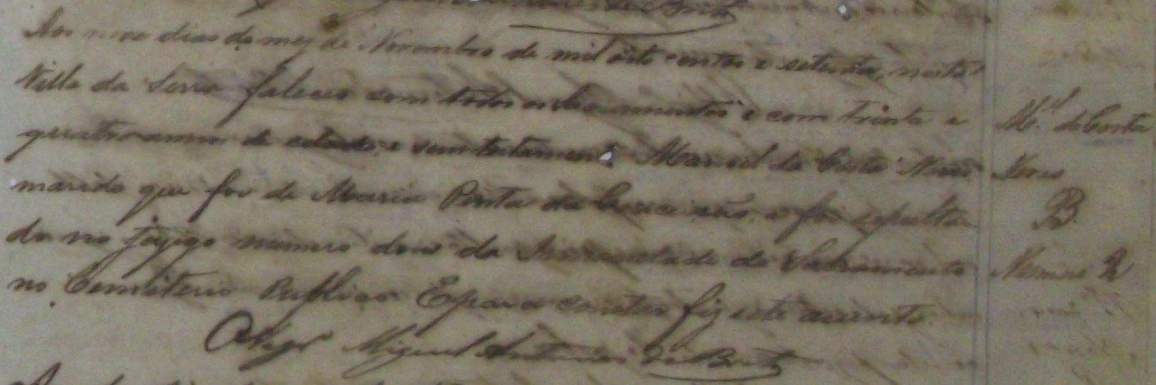 de Brito
Aos nove dias do mez de Novembro de mil oito centos e setenta, nesta
Villa da Serra faleceu com todos os Sacramentos e com trinta e
quatro annos de edade, e sem testamento Manoel da Costa Neves
marido que foi de Maria Pinta da e foi sepulta
do no jazigo numero dous da Irmandade do Sacramento
no Cemiterio Publico E para constar fiz este assento.
O Vigr.º Miguel Antonio de Brito
M.el da Costa
Neves
B
Numero 2